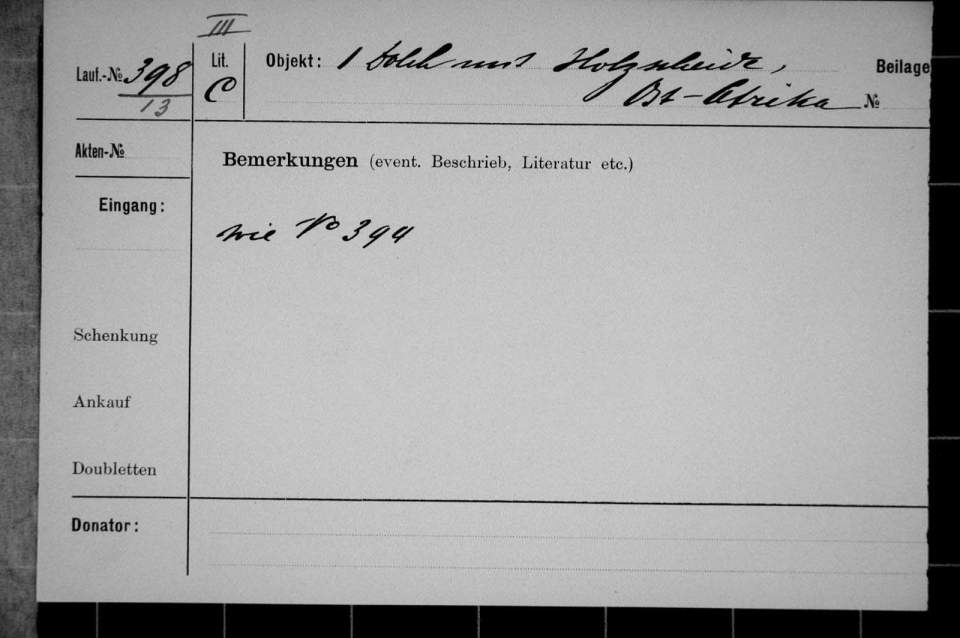 III
Lauf.-№ 398
13
Lit. C
Objekt: 1 Dolch mit Holzscheide,
Ost-Afrika
Beilage
№
Akten-№
Bemerkungen (event. Beschrieb, Literatur etc.)
Eingang:
wie No 394
Schenkung
Ankauf
Doubletten
Donator: